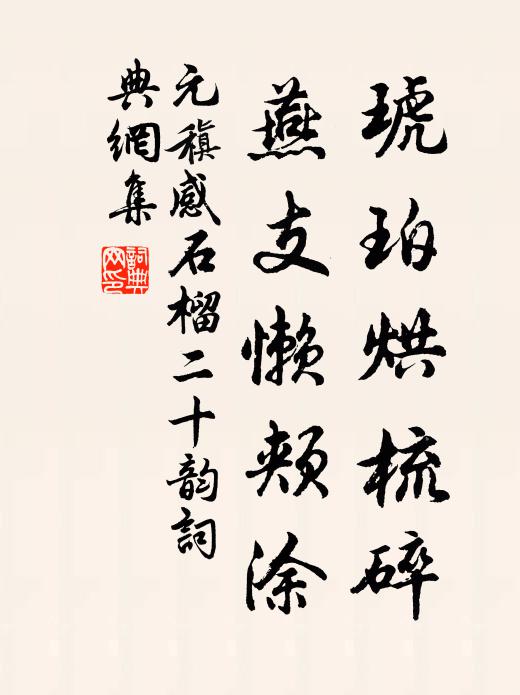 琥珀烘梳碎
燕支懶頰涂
元稹感石榴二十韵詞
典網集
詞典網印